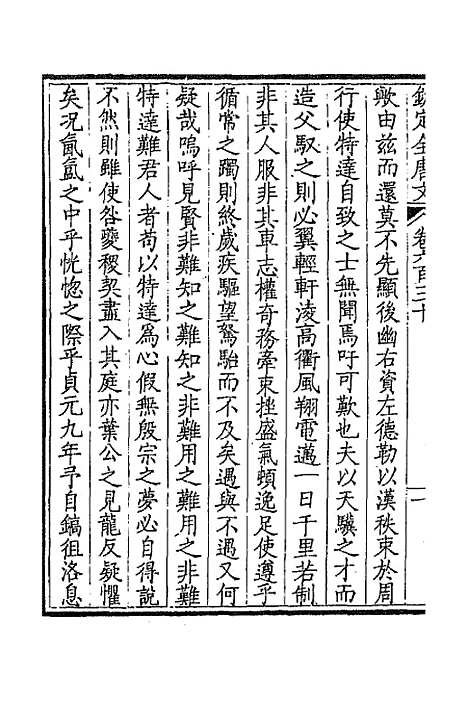 欽定全唐文 卷六百三十 一
歟由兹而還莫不先顯後幽右資左德勒以漢秩束於周
行使特達自致之士無聞焉吁可歎也夫以天驥之才而
造父馭之則必翼輕軒淩高衢風翔電邁一日千里若制
非其人服非其車志權奇務牽束挫盛氣頓逸足使遵乎
循常之躅則終歲疾驅望駑駘而不及矣遇與不遇又何
疑哉嗚呼見賢非難知之難知之非難用之難用之非難
特達難君人者苟以特達爲心假無殷宗之夢必自得說
不然則雖使咎夔稷契盡入其庭亦葉公之見龍反疑懼
矣況氤氳之中乎恍惚之際乎貞元九年予自鎬徂洛息